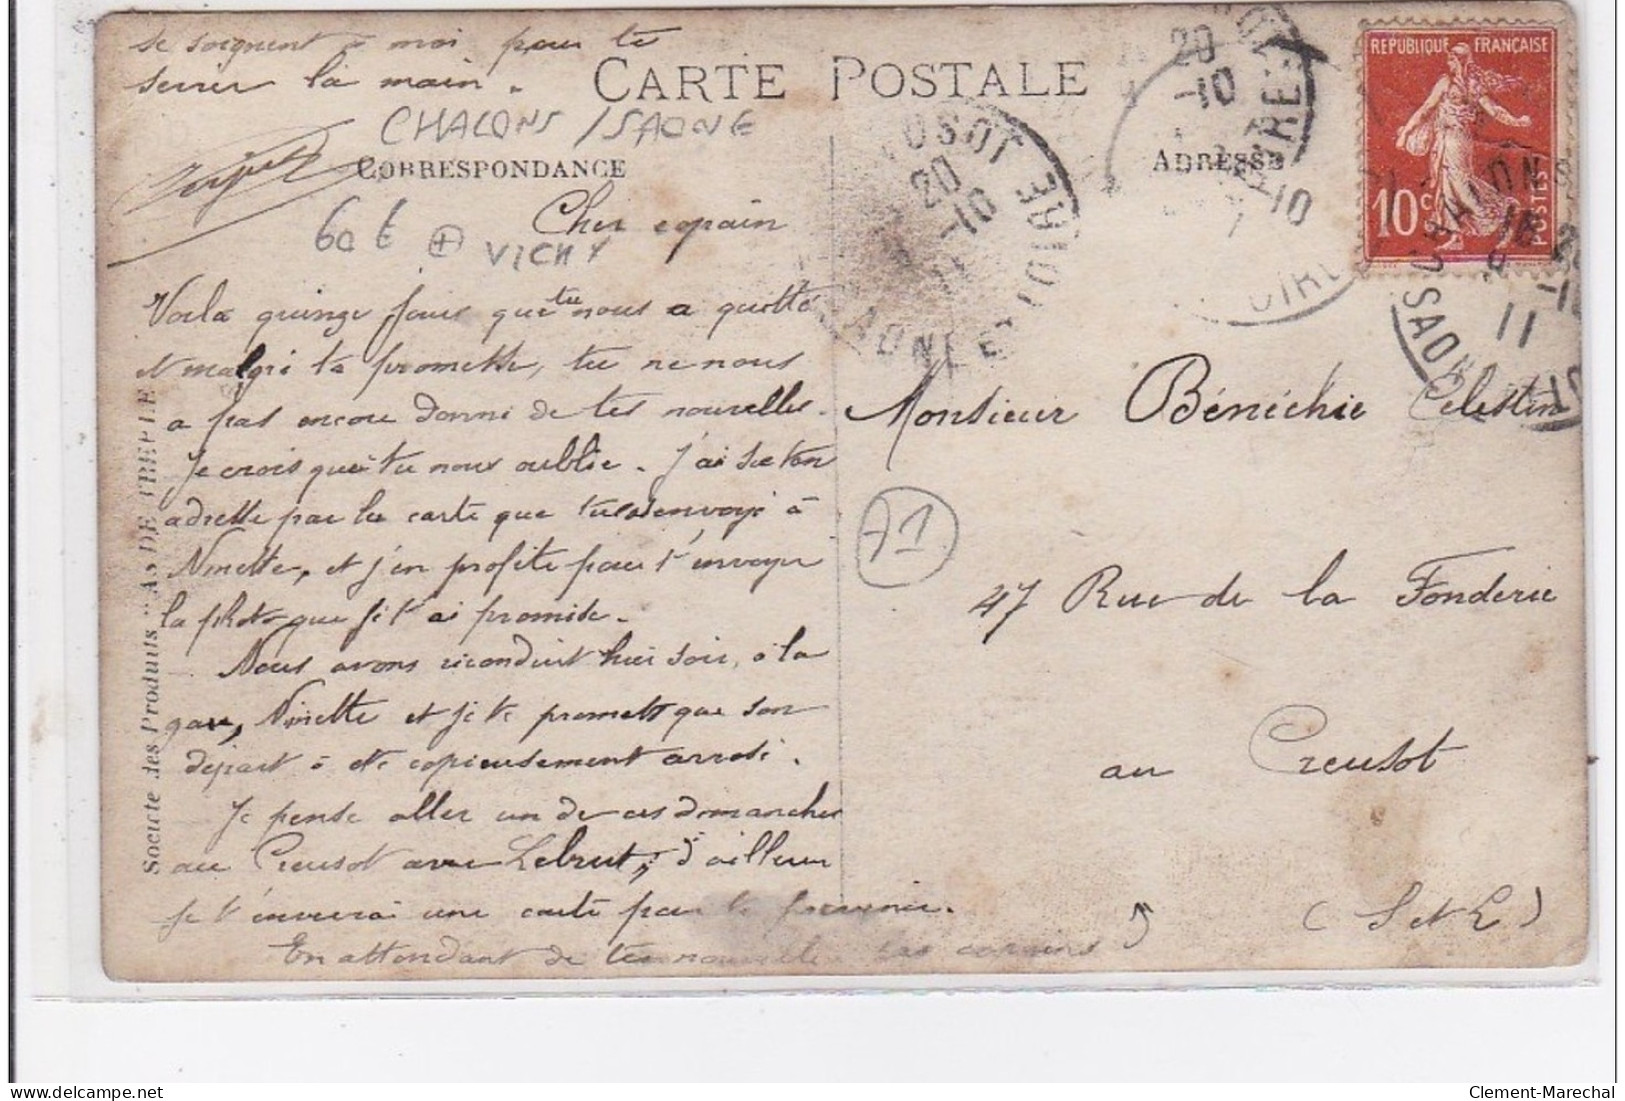 se soignent à moi pour te
serrer la main.
CARTE POSTALE
CHALONS /SAONE
CORRESPONDANCE
ADRESSE
60 €
VICHY
REPUBLIQUE FRANÇAISE
10 c
POSTES
20
-10
20
-10
10
11
Cher copain
Voila quinze jours que tu nous a quitté
et malgré ta promesse, tu ne nous
a pas encore donné de tes nouvelles.
Je crois que tu nous oublie. J'ai su ton
adresse par la carte que tu as envoyé à
Ninette, et j'en profite pour t'envoyer
la photo que je t'ai promise.
Nous avons reconduit hier soir, à la
gare, Ninette et je te promets que son
départ à été copieusement arrosé.
Je pense aller un de ces dimanches
au Creusot avec Lebrut, d'ailleur
je t'enverrai une carte pour te prévenir.
En attendant de tes nouvelles les copains
Monsieur Bénéchie Celestin
71
47 Rue de la Fonderie
au Creusot
(S et L)
Société des Produits "AS DE TREFLE"
Clement-Marechal